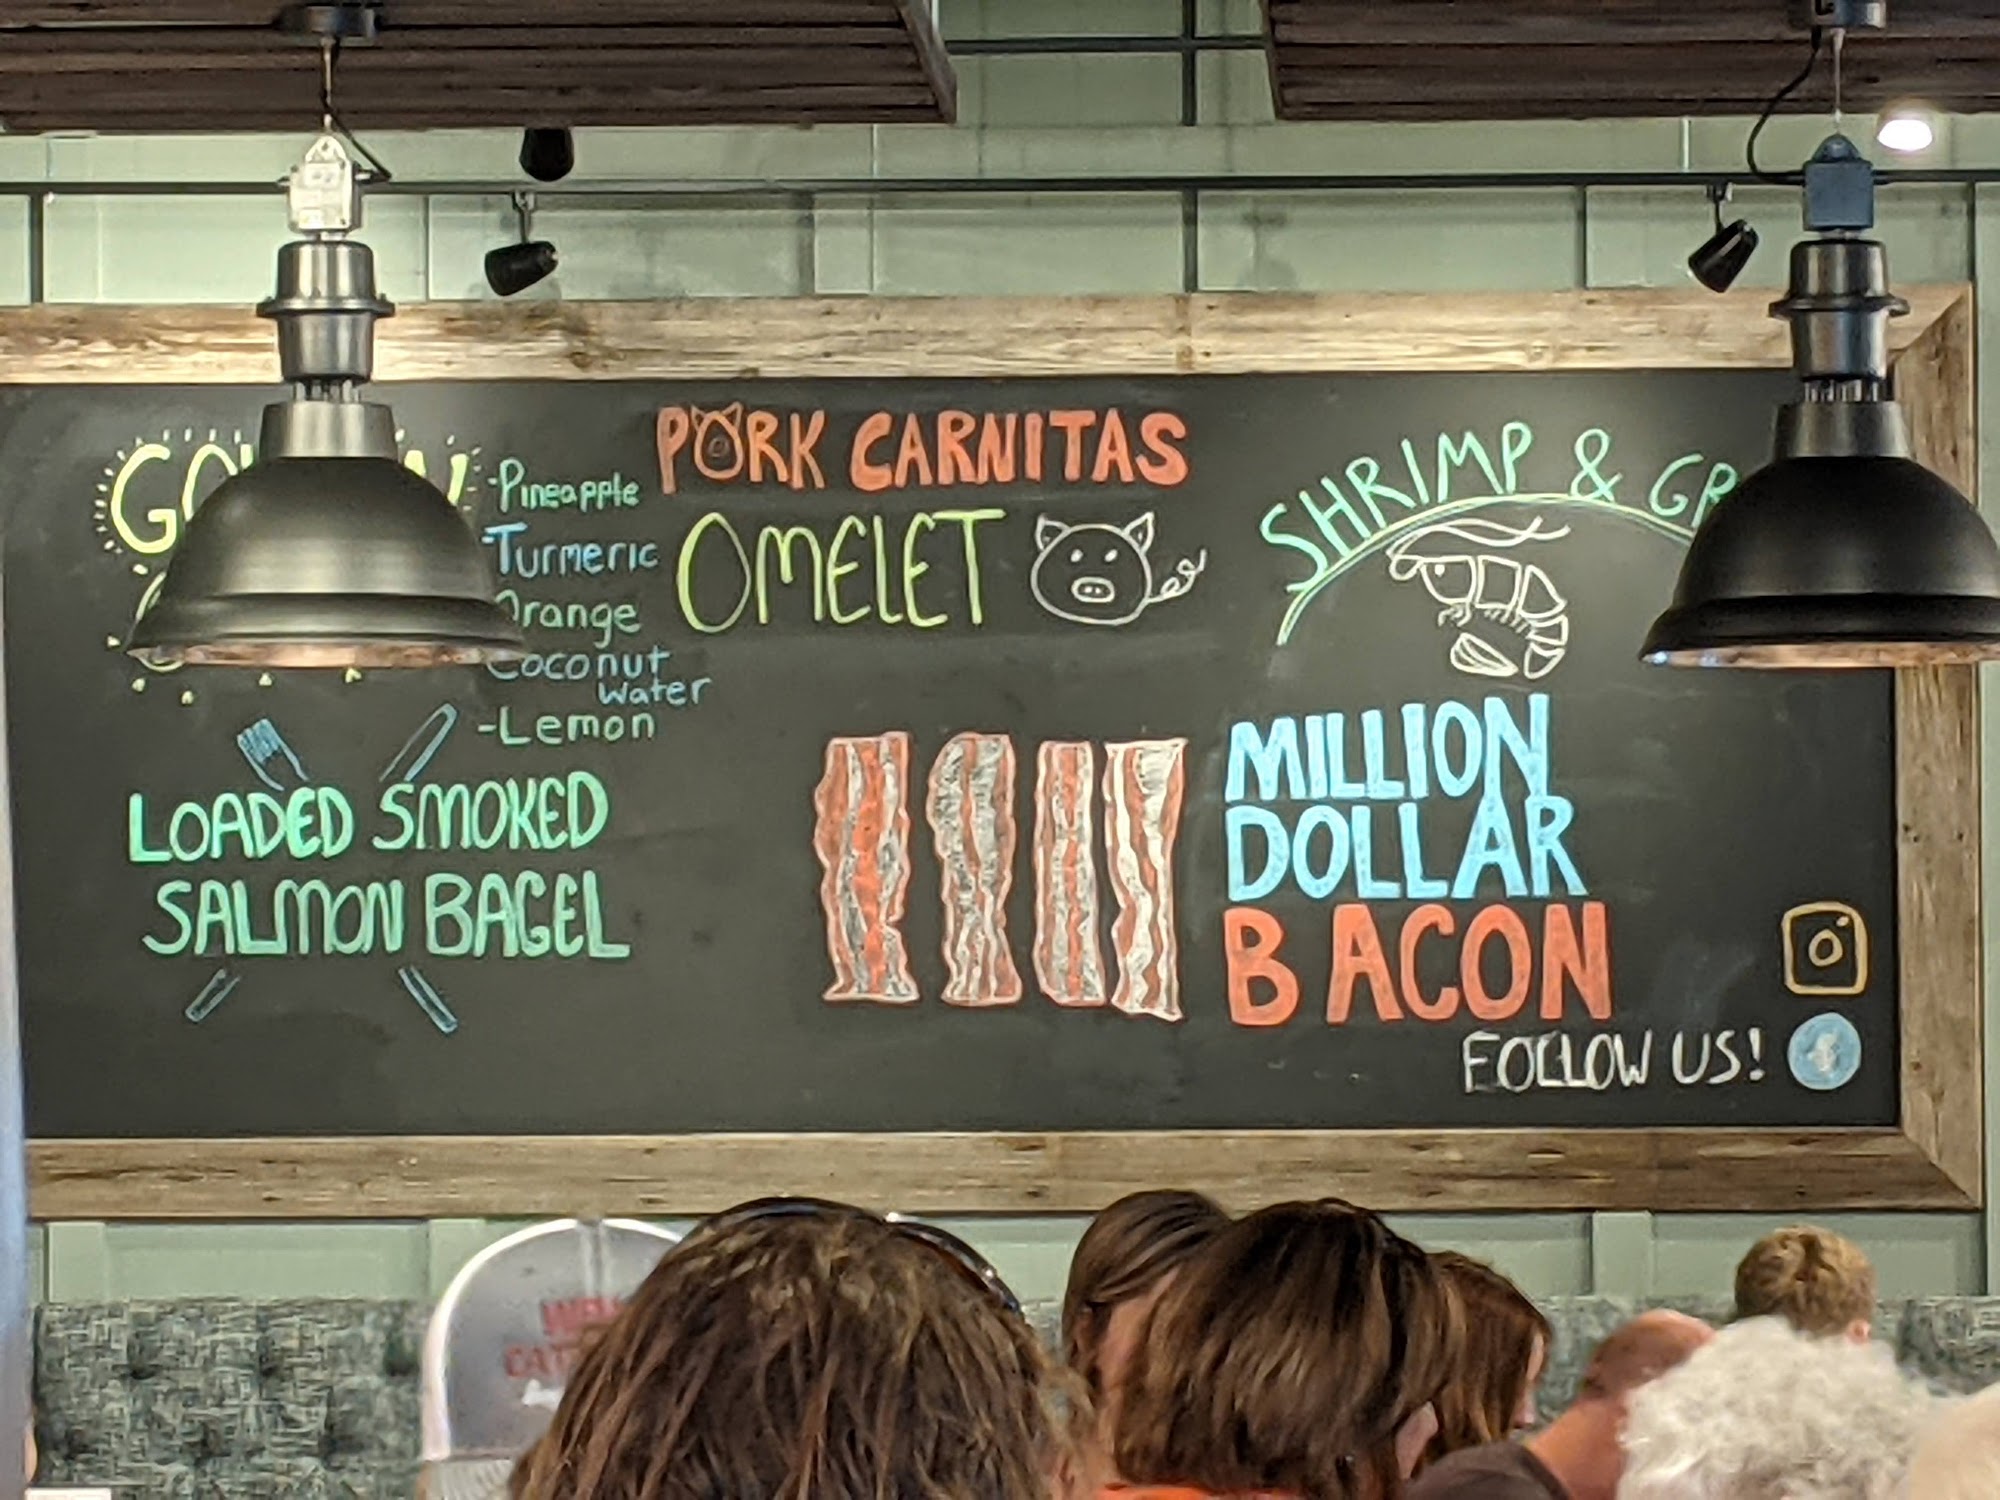 -Pineapple
-Turmeric
Orange
Coconut
Water
-Lemon
PORK CARNITAS
OMELET
SHRIMP & GR
LOADED SMOKED
SALMON BAGEL
MILLION
DOLLAR
BACON
FOLLOW US!